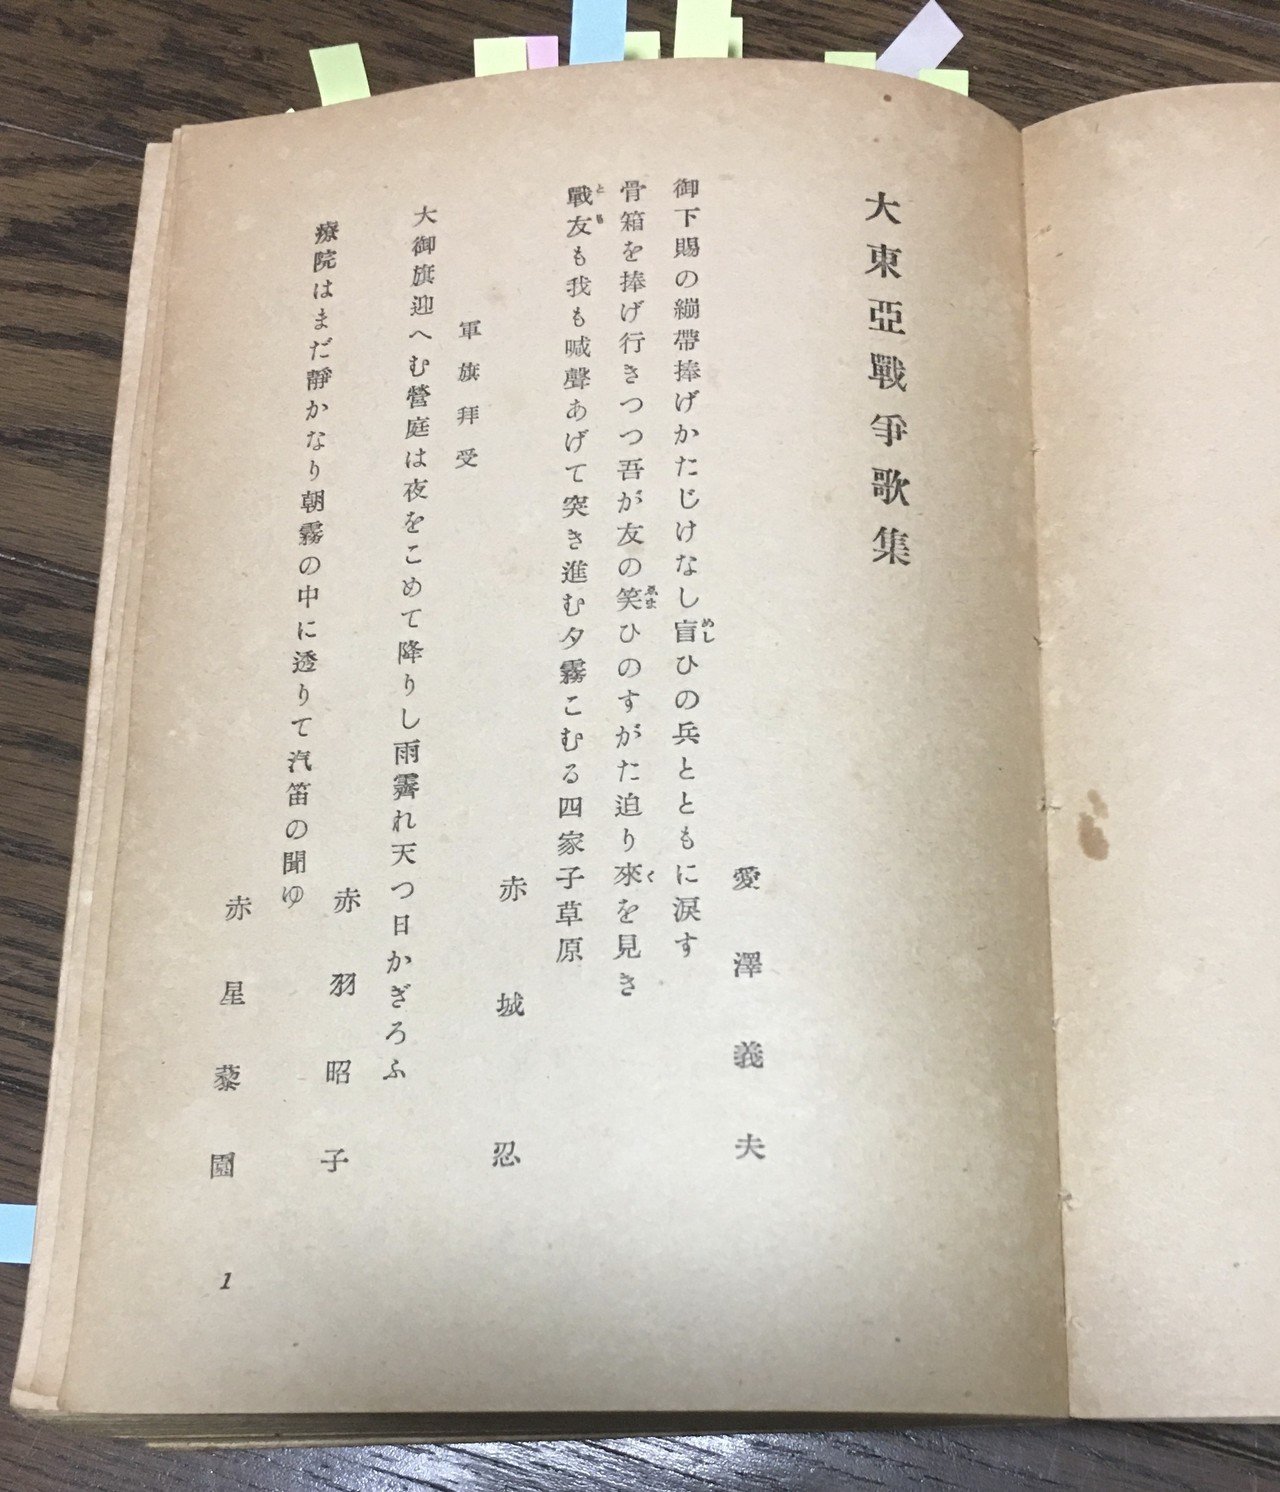 大東亞戰爭歌集
愛澤義夫
御下賜の繃帶捧げかたじけなし盲ひの兵とともに淚す
めし
骨箱を捧げ行きつつ吾が友の笑ひのすがた迫り來を見き
ゑま
く
戰友も我も喊聲あげて突き進む夕霧こむる四家子草原
とも
赤城忍
軍旗拜受
大御旗迎へむ營庭は夜をこめて降りし雨霽れ天つ日かぎろふ
赤羽昭子
療院はまだ靜かなり朝霧の中に透りて汽笛の聞ゆ
赤星藜園
1